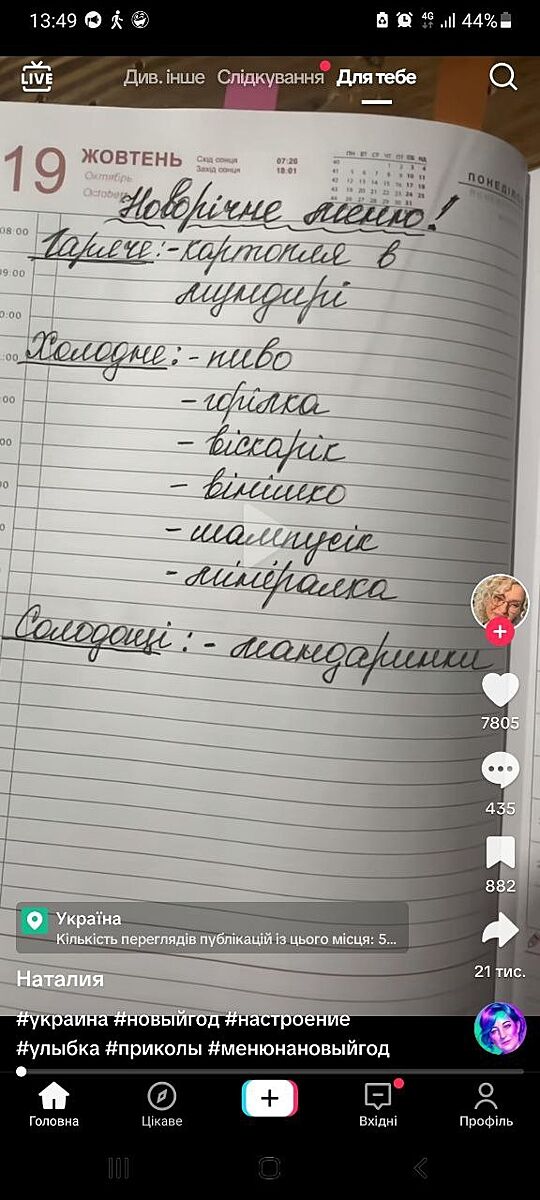 13:49
4G
44%
LIVE
Див. інше
Слідкування
Для тебе
19
ЖОВТЕНЬ
Октябрь
October
Схід сонця 07:26
Захід сонця 18:01
ПН ВТ СР ЧТ ПТ СБ НД
ПОНЕДІЛ
Новорічне меню!
08:00
Гаряче: - картопля в
09:00
мундирі
0:00
Холодне: - пиво
:00
- горілка
00
- віскарік
00
- вінішко
00
- шампусік
- мінералка
Солодощі: - мандаринки
7805
435
882
21 тис.
Україна
Кількість переглядів публікацій із цього місця: 5...
Наталия
#украина #новыйгод #настроение
#улыбка #приколы #менюнановыйгод
Головна
Цікаве
Вхідні
Профіль